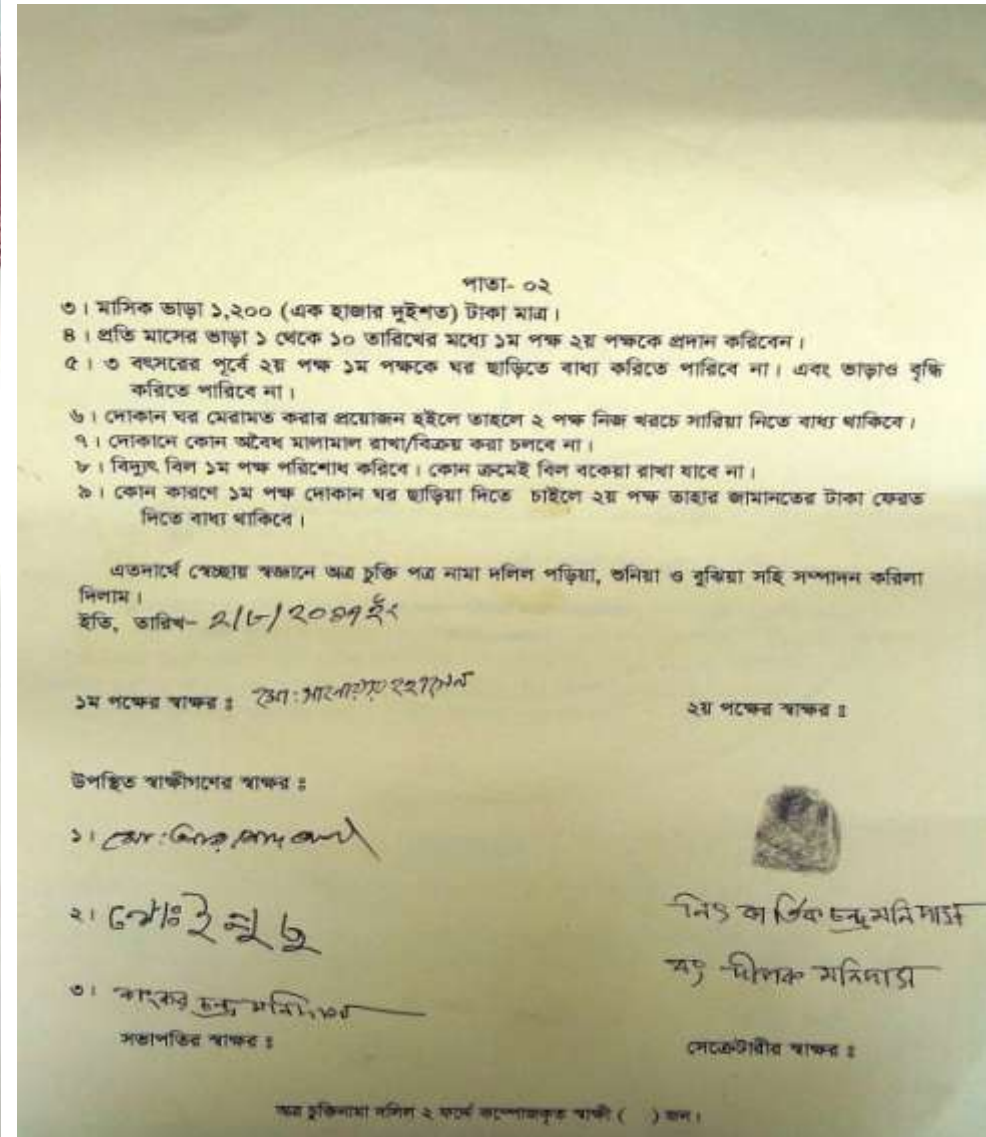 পাতা- ০২
৩। মাসিক ভাড়া ১,২০০ (এক হাজার দুইশত) টাকা মাত্র।
৪। প্রতি মাসের ভাড়া ১ থেকে ১০ তারিখের মধ্যে ১ম পক্ষ ২য় পক্ষকে প্রদান করিবেন।
৫। ৩ বৎসরের পূর্বে ২য় পক্ষ ১ম পক্ষকে ঘর ছাড়িতে বাধ্য করিতে পারিবে না। এবং ভাড়াও বৃদ্ধি
করিতে পারিবে না।
৬। দোকান ঘর মেরামত করার প্রয়োজন হইলে তাহলে ২ পক্ষ নিজ খরচে সারিয়া নিতে বাধ্য থাকিবে।
৭। দোকানে কোন অবৈধ মালামাল রাখা/বিক্রয় করা চলবে না।
৮। বিদ্যুৎ বিল ১ম পক্ষ পরিশোধ করিবে। কোন ক্রমেই বিল বকেয়া রাখা যাবে না।
৯। কোন কারণে ১ম পক্ষ দোকান ঘর ছাড়িয়া দিতে চাইলে ২য় পক্ষ তাহার জামানতের টাকা ফেরত
দিতে বাধ্য থাকিবে।
এতদার্থে স্বেচ্ছায় স্বজ্ঞানে অত্র চুক্তি পত্র নামা দলিল পড়িয়া, শুনিয়া ও বুঝিয়া সহি সম্পাদন করিলা
দিলাম।
ইতি, তারিখ- ২/৮/২০১৭ইং
১ম পক্ষের স্বাক্ষর ঃ মো: হোসেন
২য় পক্ষের স্বাক্ষর ঃ
উপস্থিত স্বাক্ষীগণের স্বাক্ষর ঃ
১। মো:
২। মোঃ
৩। চন্দ্র মনিদাস
নিং কার্তিক চন্দ্র মনিদাস
বং দীপক মনিদাস
সভাপতির স্বাক্ষর ঃ
সেক্রেটারীর স্বাক্ষর ঃ
অত্র চুক্তিনামা দলিল ২ ফর্দে কম্পোজকৃত স্বাক্ষী ( ) জন।